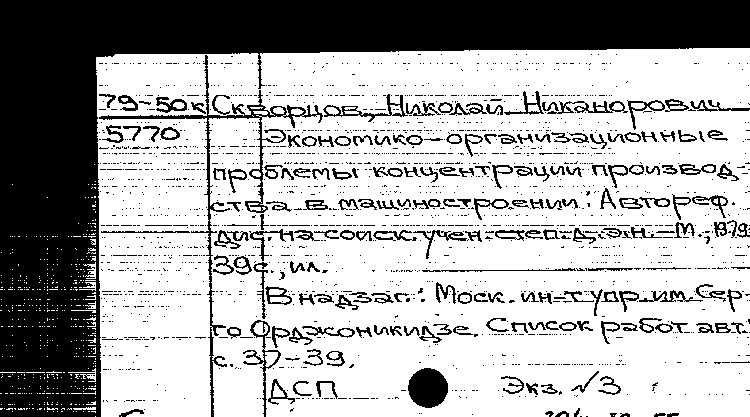 79-50к Скворцов, Николай Никанорович
5770 Экономико-организационные
проблемы концентрации производ-
ства в машиностроении: Автореф.
дис. на соиск. учен. степ. д.э.н. — М., 1979
39с., ил.
В надзаг.: Моск. ин-т упр. им. Сер-
го Орджоникидзе. Список работ авт.:
с. 37-39.
ДСП Экз. №3